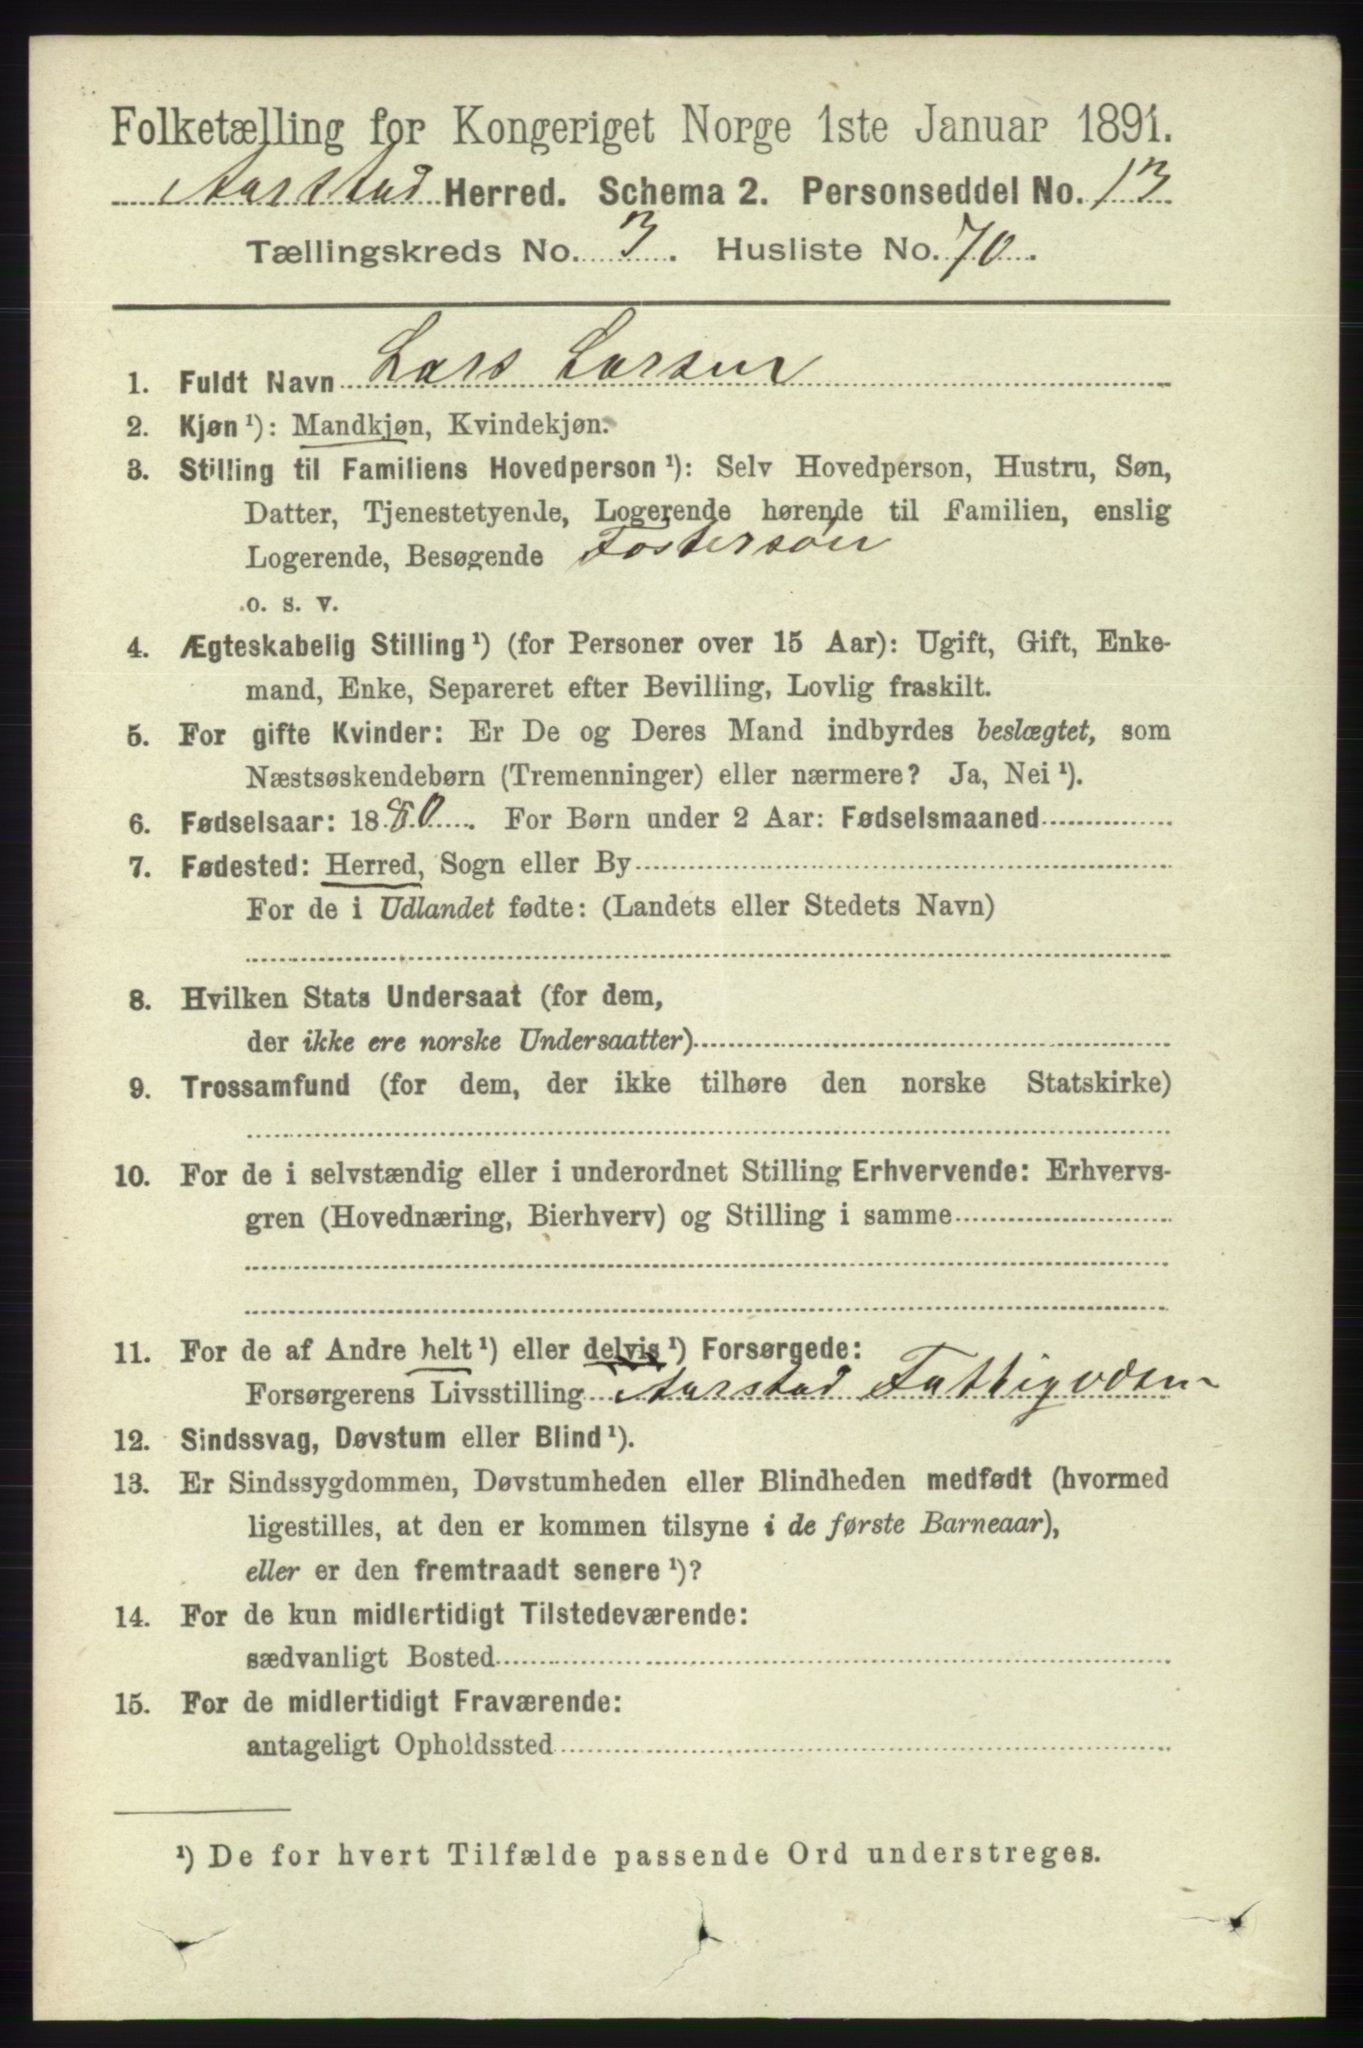 Folketælling for Kongeriget Norge 1ste Januar 1891.
Aarstad Herred. Schema 2. Personseddel No. 13
Tællingskreds No. 3. Husliste No. 70.
1. Fuldt Navn Lars Larsen
2. Kjøn¹): Mandkjøn, Kvindekjøn.
3. Stilling til Familiens Hovedperson¹): Selv Hovedperson, Hustru, Søn,
Datter, Tjenestetyende, Logerende hørende til Familien, enslig
Logerende, Besøgende Fostersøn
o. s. v.
4. Ægteskabelig Stilling¹) (for Personer over 15 Aar): Ugift, Gift, Enke-
mand, Enke, Separeret efter Bevilling, Lovlig fraskilt.
5. For gifte Kvinder: Er De og Deres Mand indbyrdes beslægtet, som
Næstsøskendebørn (Tremenninger) eller nærmere? Ja, Nei¹).
6. Fødselsaar: 1880. For Børn under 2 Aar: Fødselsmaaned
7. Fødested: Herred, Sogn eller By
For de i Udlandet fødte: (Landets eller Stedets Navn)
8. Hvilken Stats Undersaat (for dem,
der ikke ere norske Undersaatter)
9. Trossamfund (for dem, der ikke tilhøre den norske Statskirke)
10. For de i selvstændig eller i underordnet Stilling Erhvervende: Erhvervs-
gren (Hovednæring, Bierhverv) og Stilling i samme
11. For de af Andre helt¹) eller delvis¹) Forsørgede:
Forsørgerens Livsstilling Aarstad Fattigvæsen
12. Sindssvag, Døvstum eller Blind¹).
13. Er Sindssygdommen, Døvstumheden eller Blindheden medfødt (hvormed
ligestilles, at den er kommen tilsyne i de første Barneaar),
eller er den fremtraadt senere¹)?
14. For de kun midlertidigt Tilstedeværende:
sædvanligt Bosted
15. For de midlertidigt Fraværende:
antageligt Opholdssted
¹) De for hvert Tilfælde passende Ord understreges.